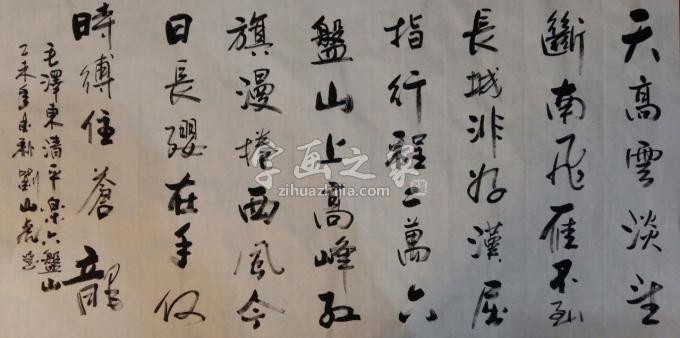 天高雲淡望
斷南飛雁不到
長城非好漢屈
指行程二萬六
盤山上高峰紅
旗漫捲西風今
日長纓在手何
時縛住蒼龍
毛澤東清平樂六盤山
乙未年劉山虎書
字画之家
zihuazhijia.com